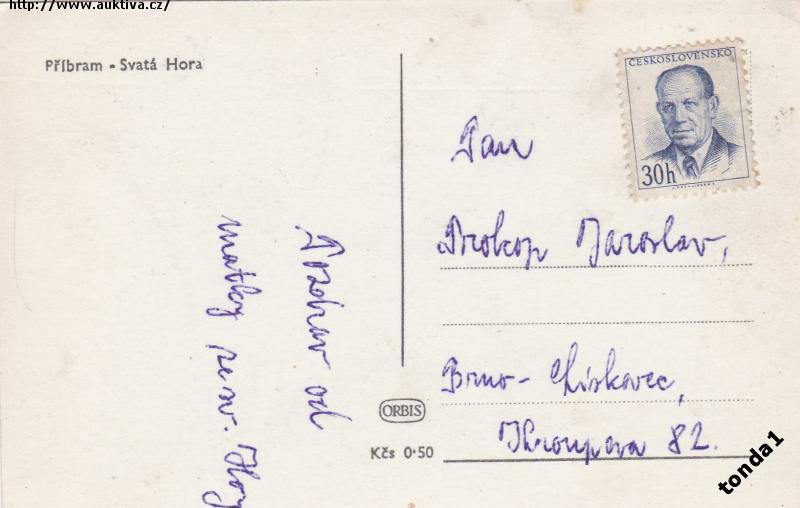 http://www.auktiva.cz/
Příbram - Svatá Hora
ČESKOSLOVENSKO
30h
Pan
Prokop Jaroslav,
Brno - Lískovec,
82.
Pozdrav od
matky ze sv. Hory
ORBIS
Kčs 0·50
tonda1